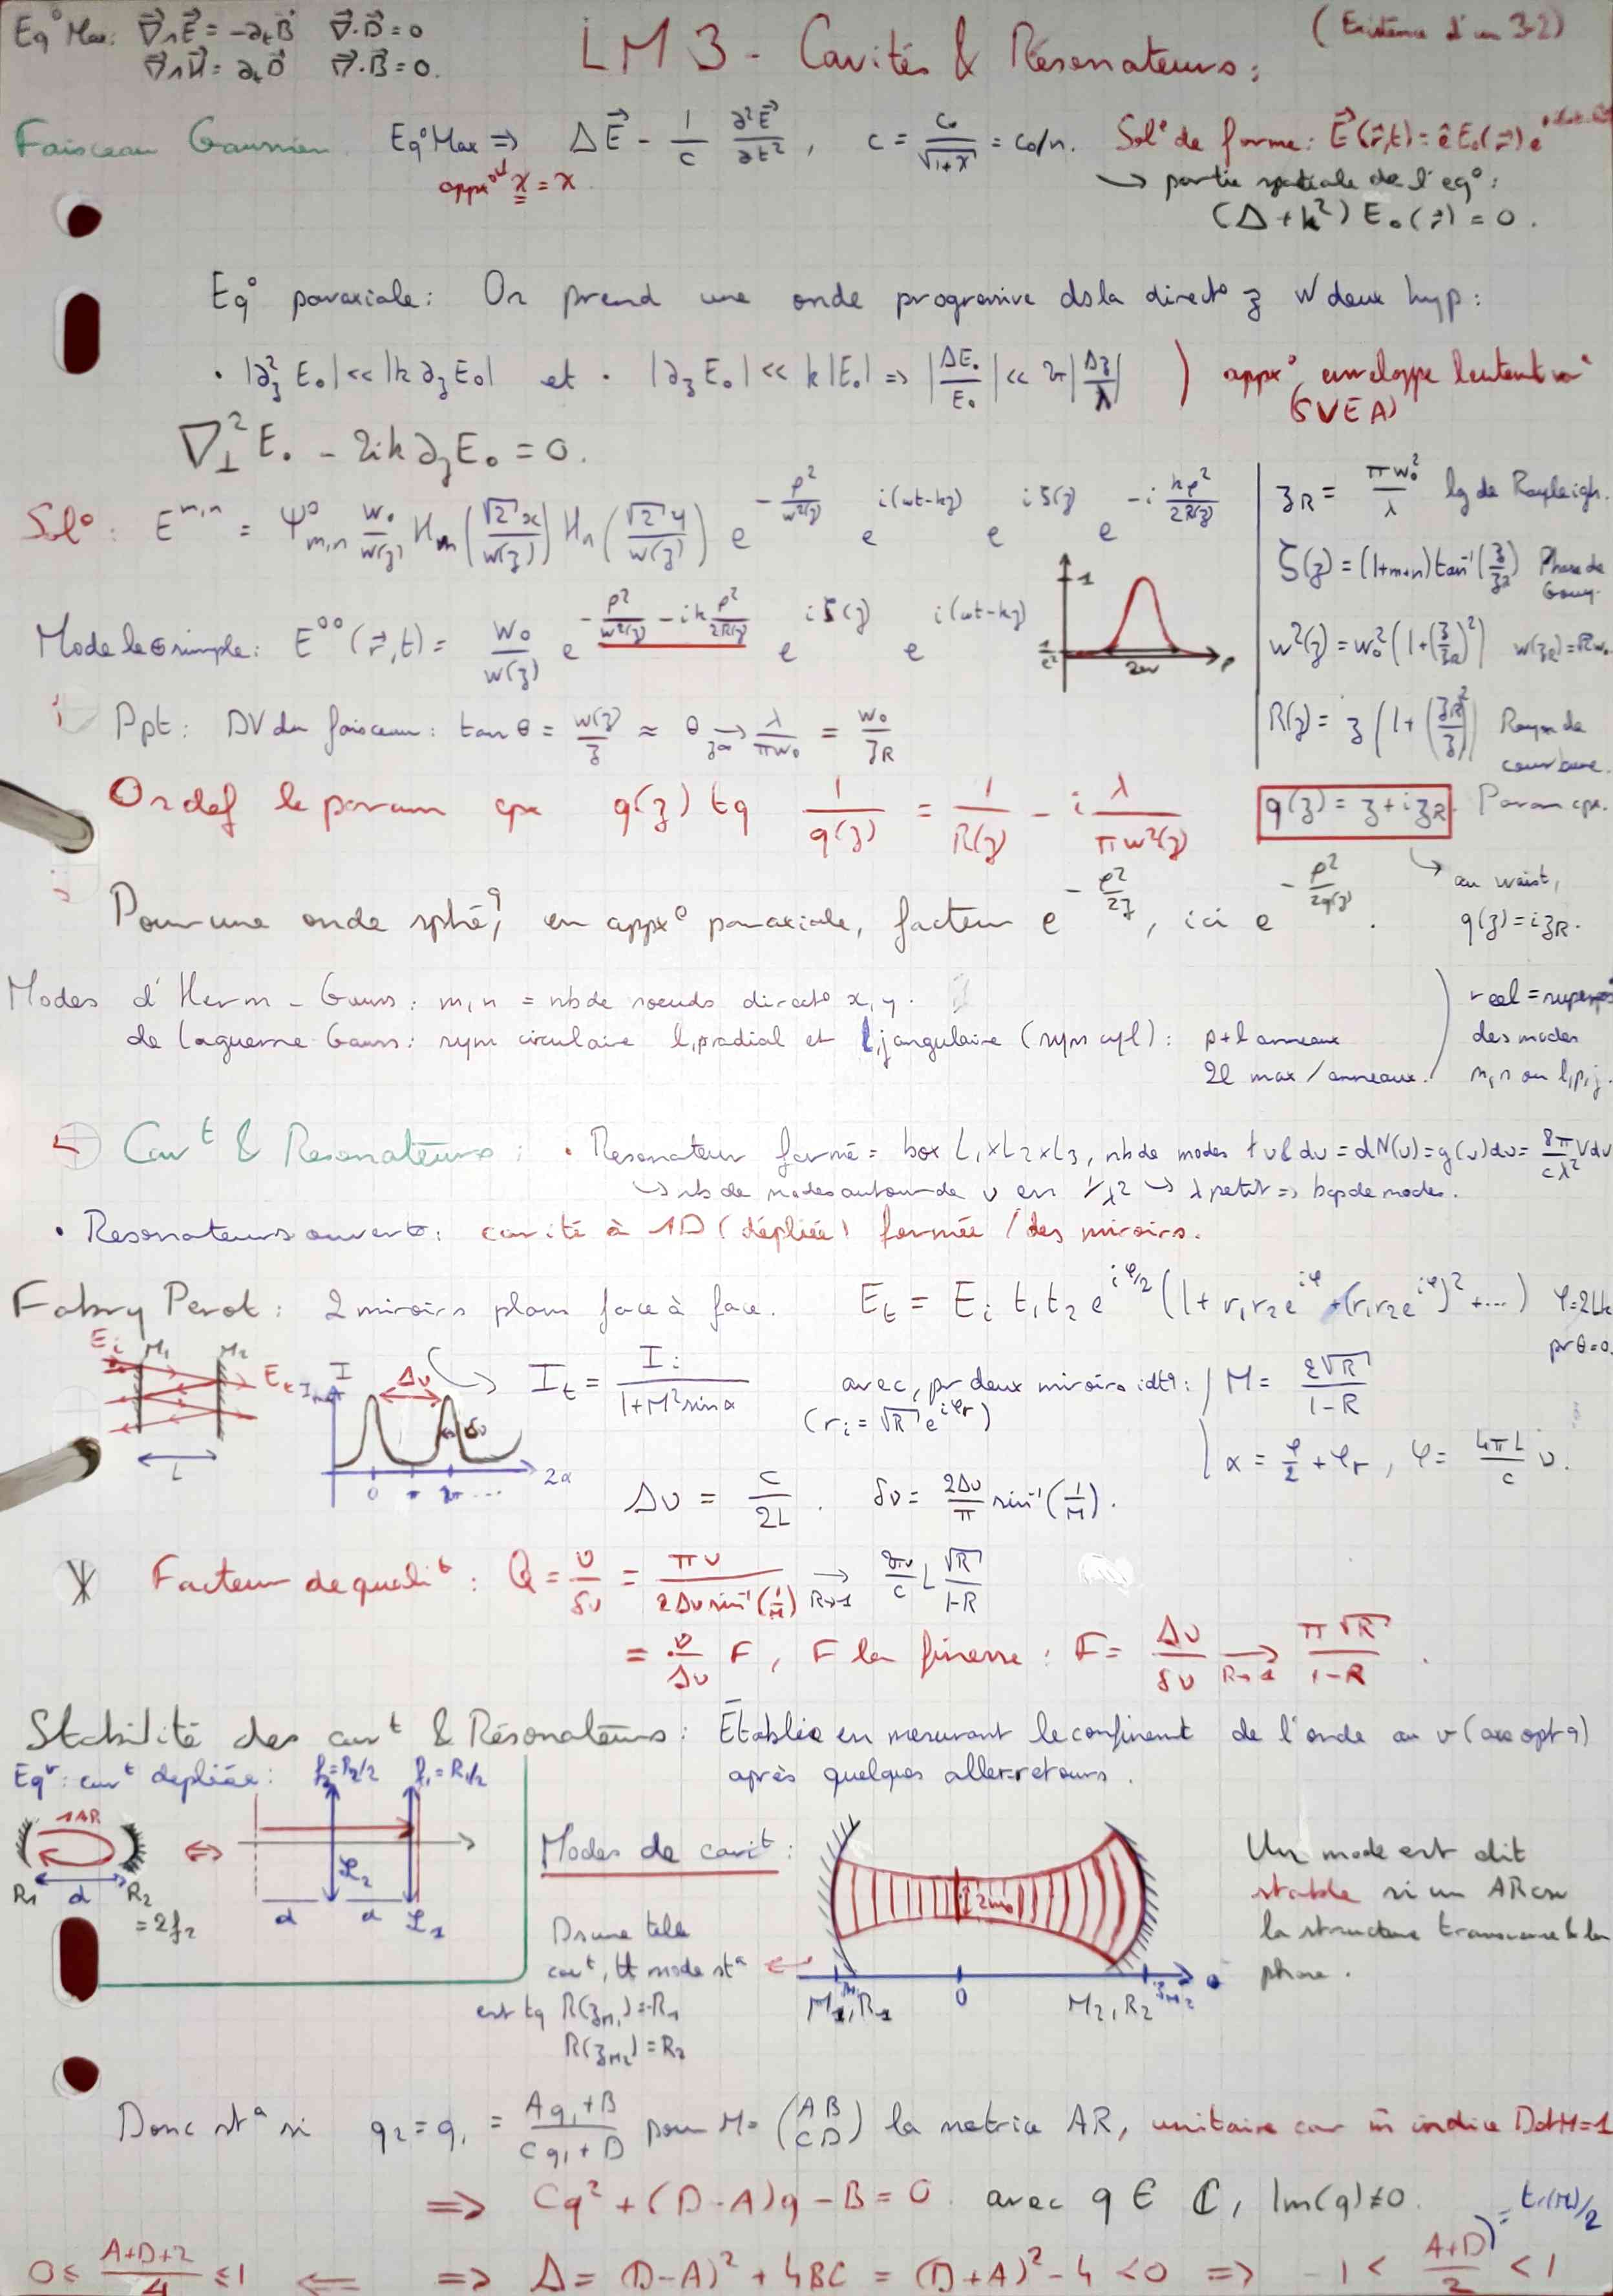 Eq° Max: ∇∧E = -∂tB   ∇·D = 0
∇∧H = ∂tD   ∇·B = 0.
LM3 - Cavités & Résonateurs:
(Existence d'un 3-2)
Faisceau Gaussien. Eq° Max => ΔE - 1/c ∂²E/∂t², c = c₀/√(1+χ) = c₀/n. Sol° de forme: E(r,t) = ê E₀(r) e
appx° χ = χ
↳ partie spatiale de l'eq°:
(Δ+k²) E₀(r) = 0.
Eq° paraxiale: On prend une onde progressive ds la direct° z w deux hyp:
• |∂z² E₀| << |k ∂z E₀| et • |∂z E₀| << k|E₀| => |ΔE₀/E₀| << 2π |Δz/λ| ) appx° enveloppe lentent
(SVEA)
∇⊥² E₀ - 2ik ∂z E₀ = 0.
Sol°: E^m,n = Ψ°m,n w₀/w(z) Hm(√2 x/w(z)) Hn(√2 y/w(z)) e^(-ρ²/w²(z)) e^(i(ωt-kz)) e^(iζ(z)) e^(-i kρ²/2R(z))
zR = πw₀²/λ lg de Rayleigh.
ζ(z) = (1+m+n) tan⁻¹(z/zR) Phase de Gouy.
Mode le ⊕ simple: E⁰⁰(r,t) = w₀/w(z) e^(-ρ²/w²(z) - ik ρ²/2R(z)) e^(iζ(z)) e^(i(ωt-kz))
1
1/e²
2w
ρ
w²(z) = w₀²(1+(z/zR)²) w(zR) = √2w₀
Ppt: DV du faisceau: tan θ = w(z)/z ≈ θ →z∞ λ/πw₀ = w₀/zR
R(z) = z(1+(zR/z)²) Rayon de courbure.
On def le param cpx q(z) tq 1/q(z) = 1/R(z) - i λ/πw²(z)
q(z) = z + i zR. Param cpx.
↳ au waist,
q(z) = i zR.
Pour une onde sphé^q, en appx° paraxiale, facteur e^(-ρ²/2z), ici e^(-ρ²/2q(z)).
Modes d'Herm-Gauss: m,n = nb de noeuds direct° x,y.
de Laguerre Gauss: sym circulaire l,p radial et l,j angulaire (sym cyl): p+l anneaux
2l max/anneaux.
réel = superpos°
des modes
m,n ou l,p,j.
Cav^t & Resonateurs: • Resonateur fermé = box L₁×L₂×L₃, nb de modes t ν & dν = dN(ν) = g(ν)dν = 8π/cλ² Vdν
↳ nb de modes autour de ν en 1/λ² → λ petit => bcp de modes.
• Resonateurs ouverts: cavité à 1D (dépliée) formée / des miroirs.
Fabry Perot: 2 miroirs plans face à face. Et = Ei t₁t₂ e^(iφ/2) (1 + r₁r₂e^(iφ) + (r₁r₂e^(iφ))² + ...) φ = 2Lk
pr θ=0.
Ei M₁ M₂ Et L
Imax I Δν δν 0 π 2π ... 2α
It = Ii/(1+M² sin α) avec, pr deux miroirs idt^q: | M = 2√R/(1-R)
(ri = √R e^(iφr))
α = φ/2 + φr, φ = 4πL/c ν.
Δν = c/2L. δν = 2Δν/π sin⁻¹(1/M).
Facteur de qualit^t: Q = ν/δν = πν/(2Δν sin⁻¹(1/M)) →R→1 2πν/c L √R/(1-R)
= ν/Δν F, F la finesse: F = Δν/δν →R→1 π√R/(1-R).
Stabilité des cav^t & Résonateurs: Établie en mesurant le confinemt de l'onde au v(axe opt^q)
après quelques aller-retours.
Eq^v: cav^t dépliée: f₂=R₂/2 f₁=R₁/2
1AR
R₁ d R₂
= 2f₂
d d L₂ L₁
Modes de cavi^t:
2w₀
M₁,R₁ 0 M₂,R₂ zM₂
Un mode est dit
stable si un AR csv
la structure transverse & la
phase.
Ds une telle
cav^t, tt mode st^a
est tq R(zM₁) = -R₁
R(zM₂) = R₂
Donc st^a si q₂ = q₁ = (Aq₁+B)/(Cq₁+D) pour M = (A B C D) la matrice AR, unitaire car m̄ indice DetM=1
=> Cq² + (D-A)q - B = 0. avec q ∈ ℂ, Im(q)≠0.
0 ≤ (A+D+2)/4 ≤ 1 <= => Δ = (D-A)² + 4BC = (D+A)² - 4 < 0 => -1 < (A+D)/2 < 1
= tr(M)/2